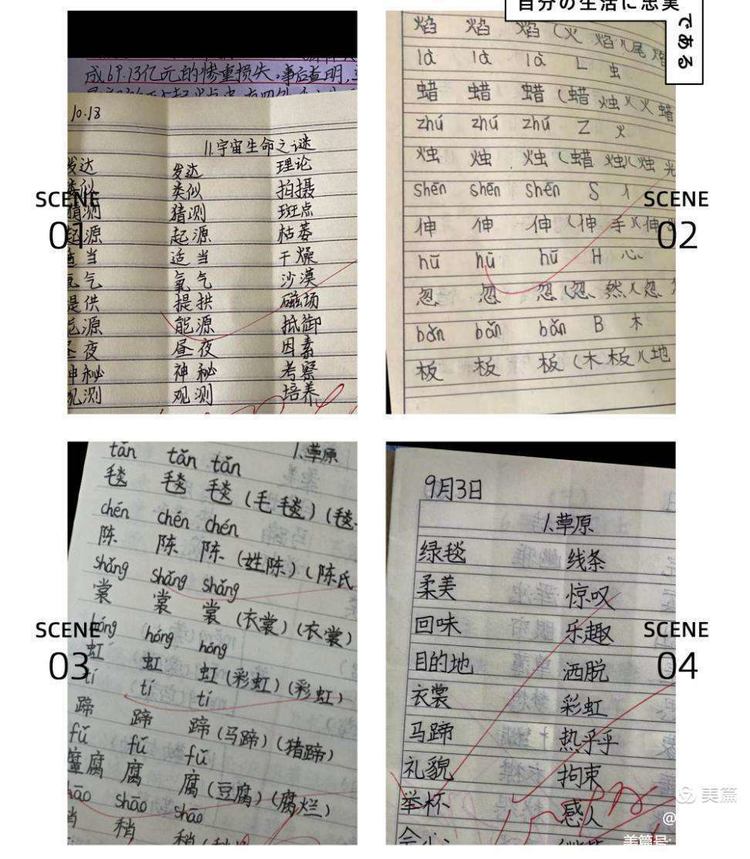 自分の生活に忠実
である
SCENE
01
成69.13亿元的惨重损失,事后查明,
10.18
11.宇宙生命之谜
发达 发达 理论
类似 类似 拍摄
猜测 猜测 斑点
起源 起源 枯萎
适当 适当 干燥
氧气 氧气 沙漠
提供 提拱 磁场
能源 能源 抵御
昼夜 昼夜 因素
神秘 神秘 考察
观测 观测 培养
SCENE
02
焰 焰 焰(火焰)(尾焰
là là là L 虫
蜡 蜡 蜡(蜡烛)(火蜡
zhú zhú zhú Z 火
烛 烛 烛(蜡烛)(烛光
shēn shēn shēn S 亻
伸 伸 伸(伸手)(伸
hū hū hū H 心
忽 忽 忽(忽然)(忽
bǎn bǎn bǎn B 木
板 板 板(木板)(地
SCENE
03
tǎn tǎn tǎn 1.草原
毯 毯 毯(毛毯)(毯
chén chén chén
陈 陈 陈(姓陈)(陈氏
shang shang shang
裳 裳 裳(衣裳)(衣裳)
hóng hóng hóng
虹 虹 虹(彩虹)(彩虹)
tí tí tí
蹄 蹄 蹄(马蹄)(猪蹄)
fǔ fǔ fǔ
腐 腐 腐(豆腐)(腐烂)
shāo shāo shāo
稍 稍 稍
SCENE
04
9月3日
1.草原
绿毯 线条
柔美 惊叹
回味 乐趣
目的地 洒脱
衣裳 彩虹
马蹄 热乎乎
礼貌 拘束
举杯 感人
会心
美篇
@
美篇号